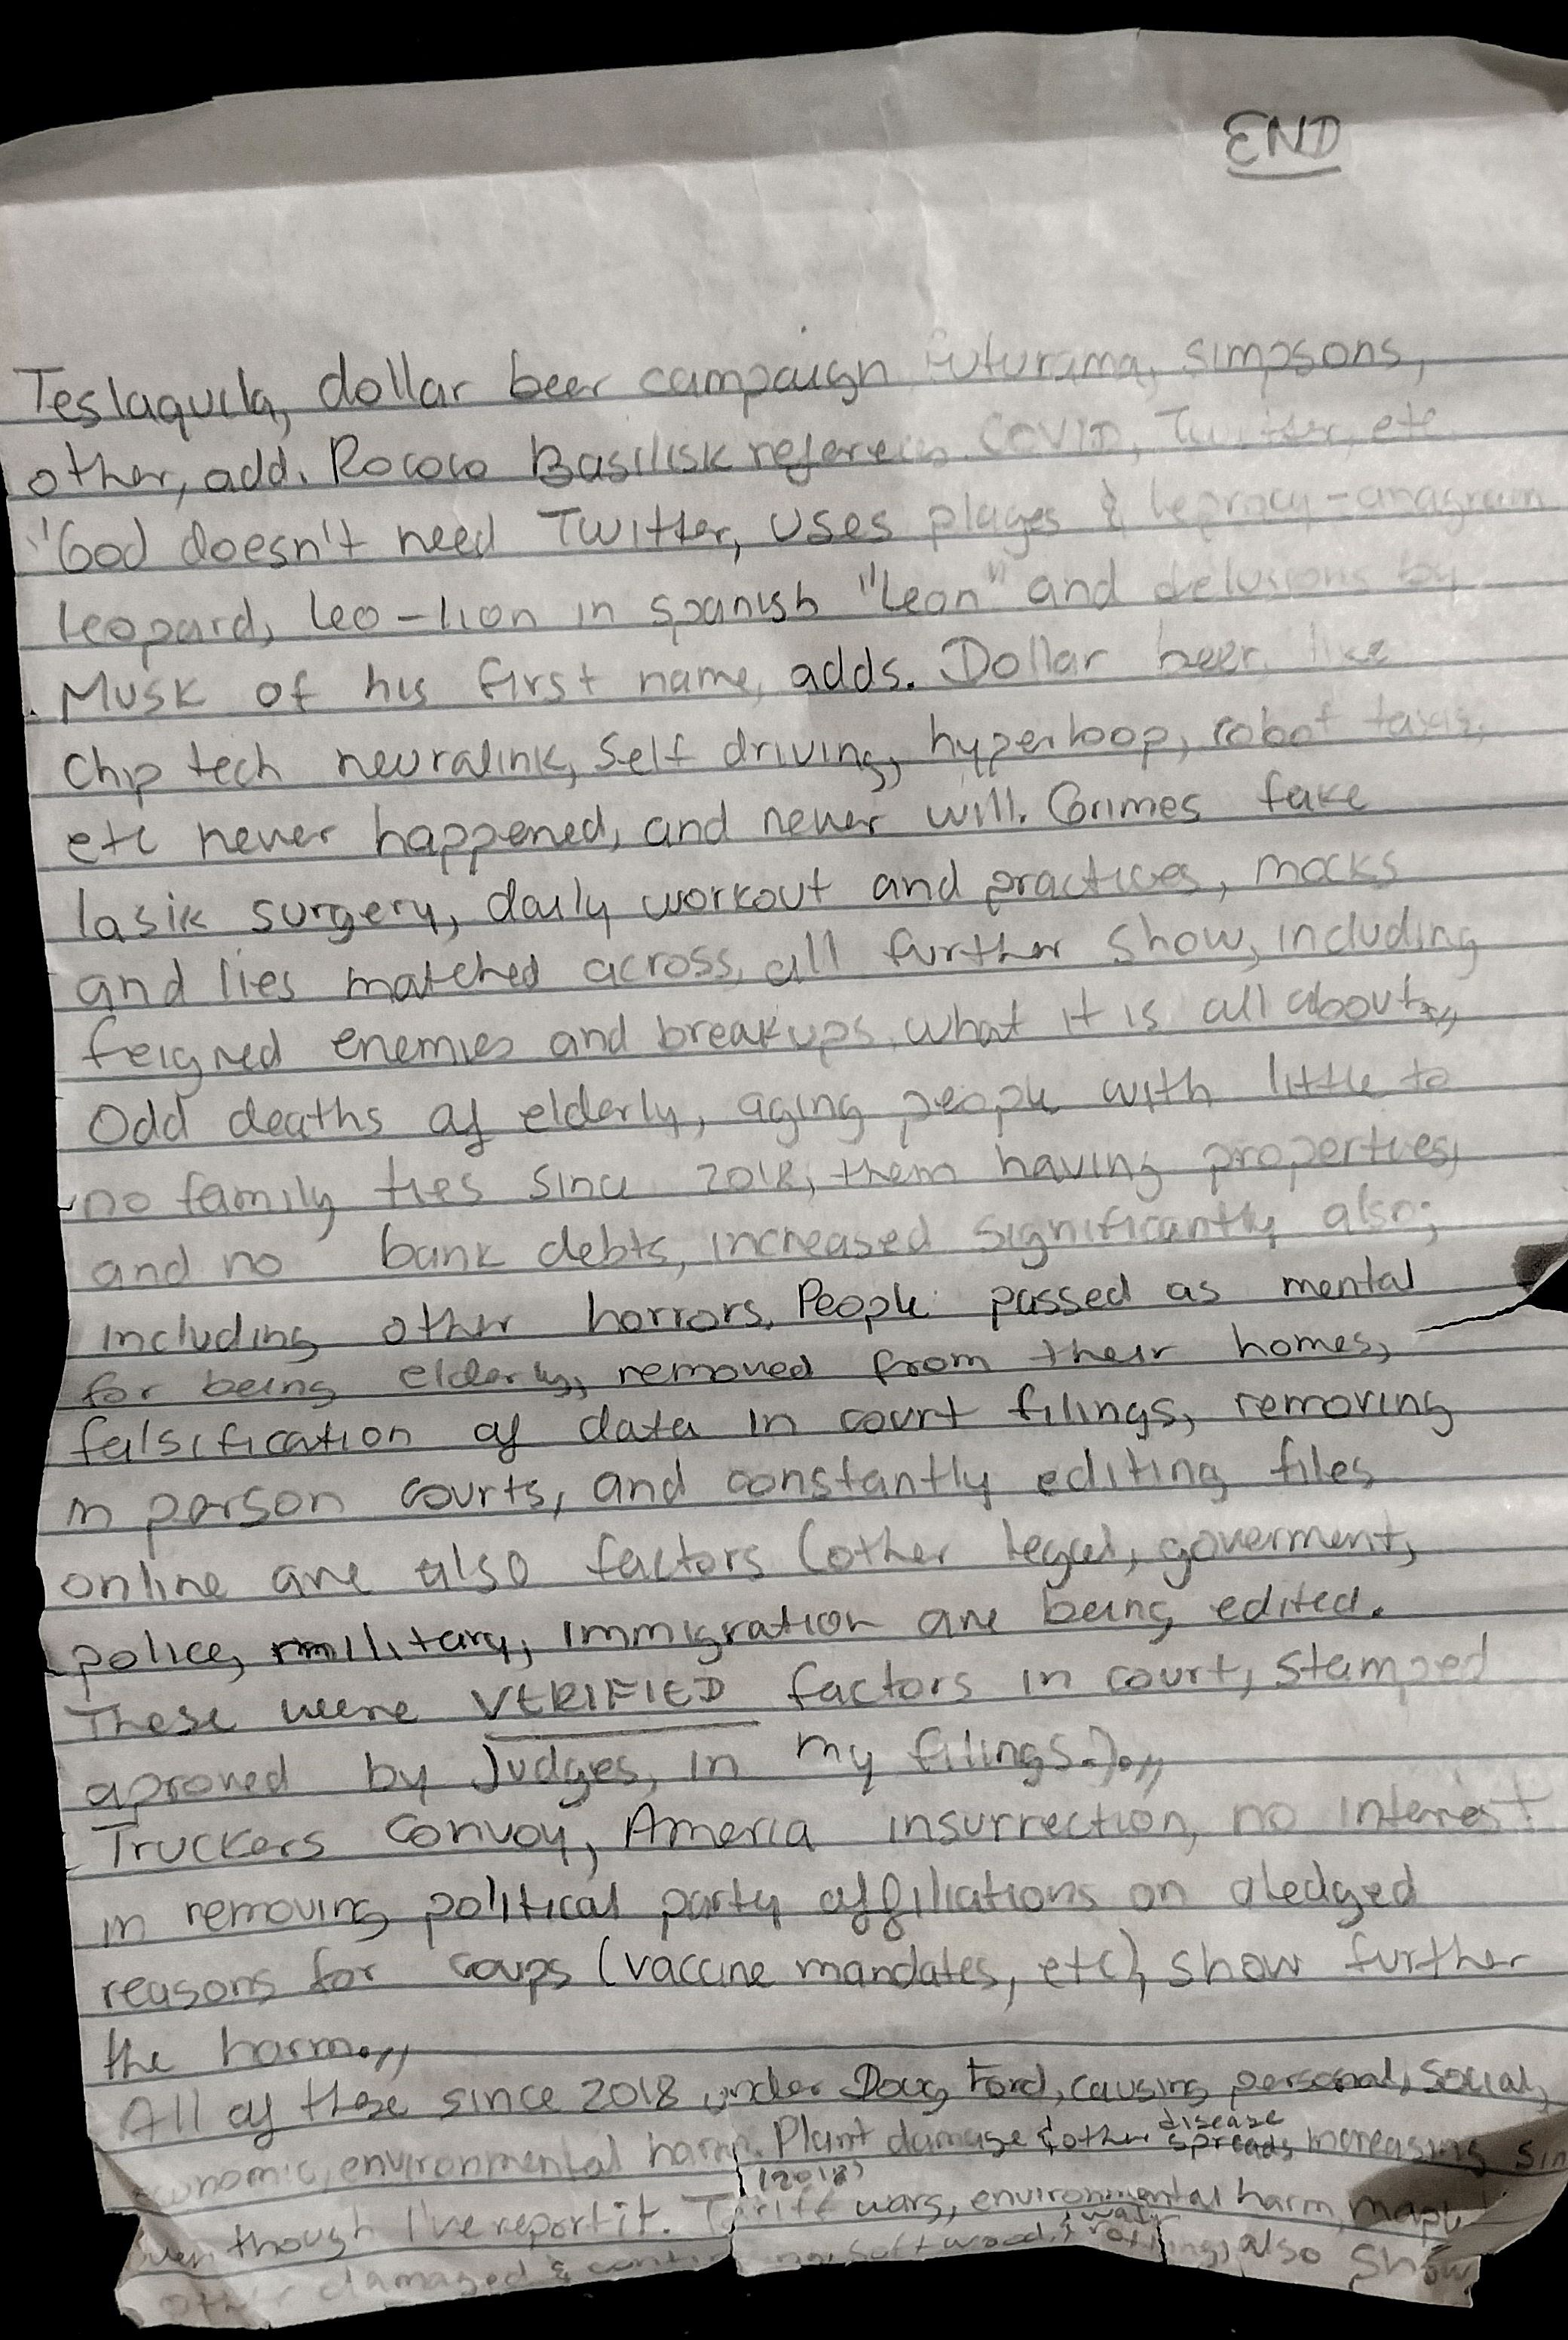 END
Teslaquila, dollar beer campaign Futurama, simpsons,
other, add. Rococo Basilisk referen COVID, Twitter, etc
"God doesn't need Twitter, uses plages & leprocy-anagram
leopard, leo-lion in spanish "Leon" and delusions by
Musk of his first name, adds. Dollar beer, like
Chip tech neuralink, self driving, hyperloop, robot taxis,
etc never happened, and never will. Grimes fake
lasik surgery, daily workout and practices, mocks
and lies matched across, all further show, including
feigned enemies and breakups, what it is all about.,,
Odd deaths of elderly, aging people with little to
no family ties since 2018, them having properties,
and no bank debts, increased significantly also;
including other horrors. People passed as mental
for being elderly, removed from their homes,
falsification of data in court filings, removing
in parson courts, and constantly editing files
online are also factors (other legal, goverment,
police, military, immigration are being edited.
These were VERIFIED factors in court, stamped
aproved by Judges, in my filings.).,,
Truckers Convoy, America insurrection, no interest
in removing political party affiliations on aledged
reasons for coups (vaccine mandates, etc), show further
the harm.,,
All of these since 2018 under Doug Ford, causing personal, social,
economic, environmental harm. Plant damage & other disease spreads increasing sin
(2018)
even though I've report it. Tariff wars, environmental harm,
other damaged & softwood, & also show